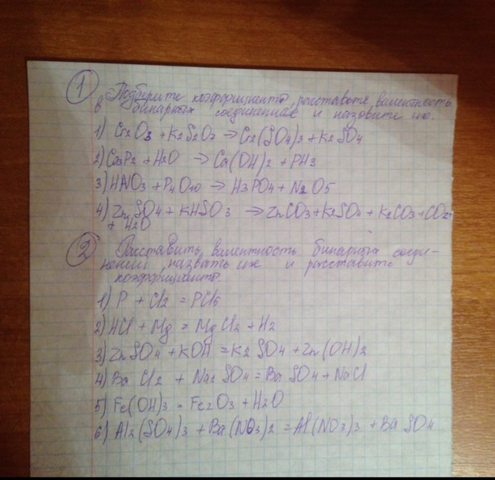 1
Подберите коэффициенты, расставьте валентность
в бинарных соединениях и назовите их.
1) Cr2O3 + K2S2O7 → Cr2(SO4)3 + K2SO4
2) Ca3P2 + H2O → Ca(OH)2 + PH3
3) HNO3 + P4O10 → H3PO4 + N2O5
4) ZnSO4 + KHSO3 → ZnCO3 + K2SO4 + K2CO3 + CO2
+ H2O
2 Расставить валентность бинарных соеди-
нений, назвать их и расставить
коэффициенты
1) P + Cl2 = PCl5
2) HCl + Mg = MgCl2 + H2
3) ZnSO4 + KOH = K2SO4 + Zn(OH)2
4) BaCl2 + Na2SO4 = BaSO4 + NaCl
5) Fe(OH)3 = Fe2O3 + H2O
6) Al2(SO4)3 + Ba(NO3)2 = Al(NO3)3 + BaSO4